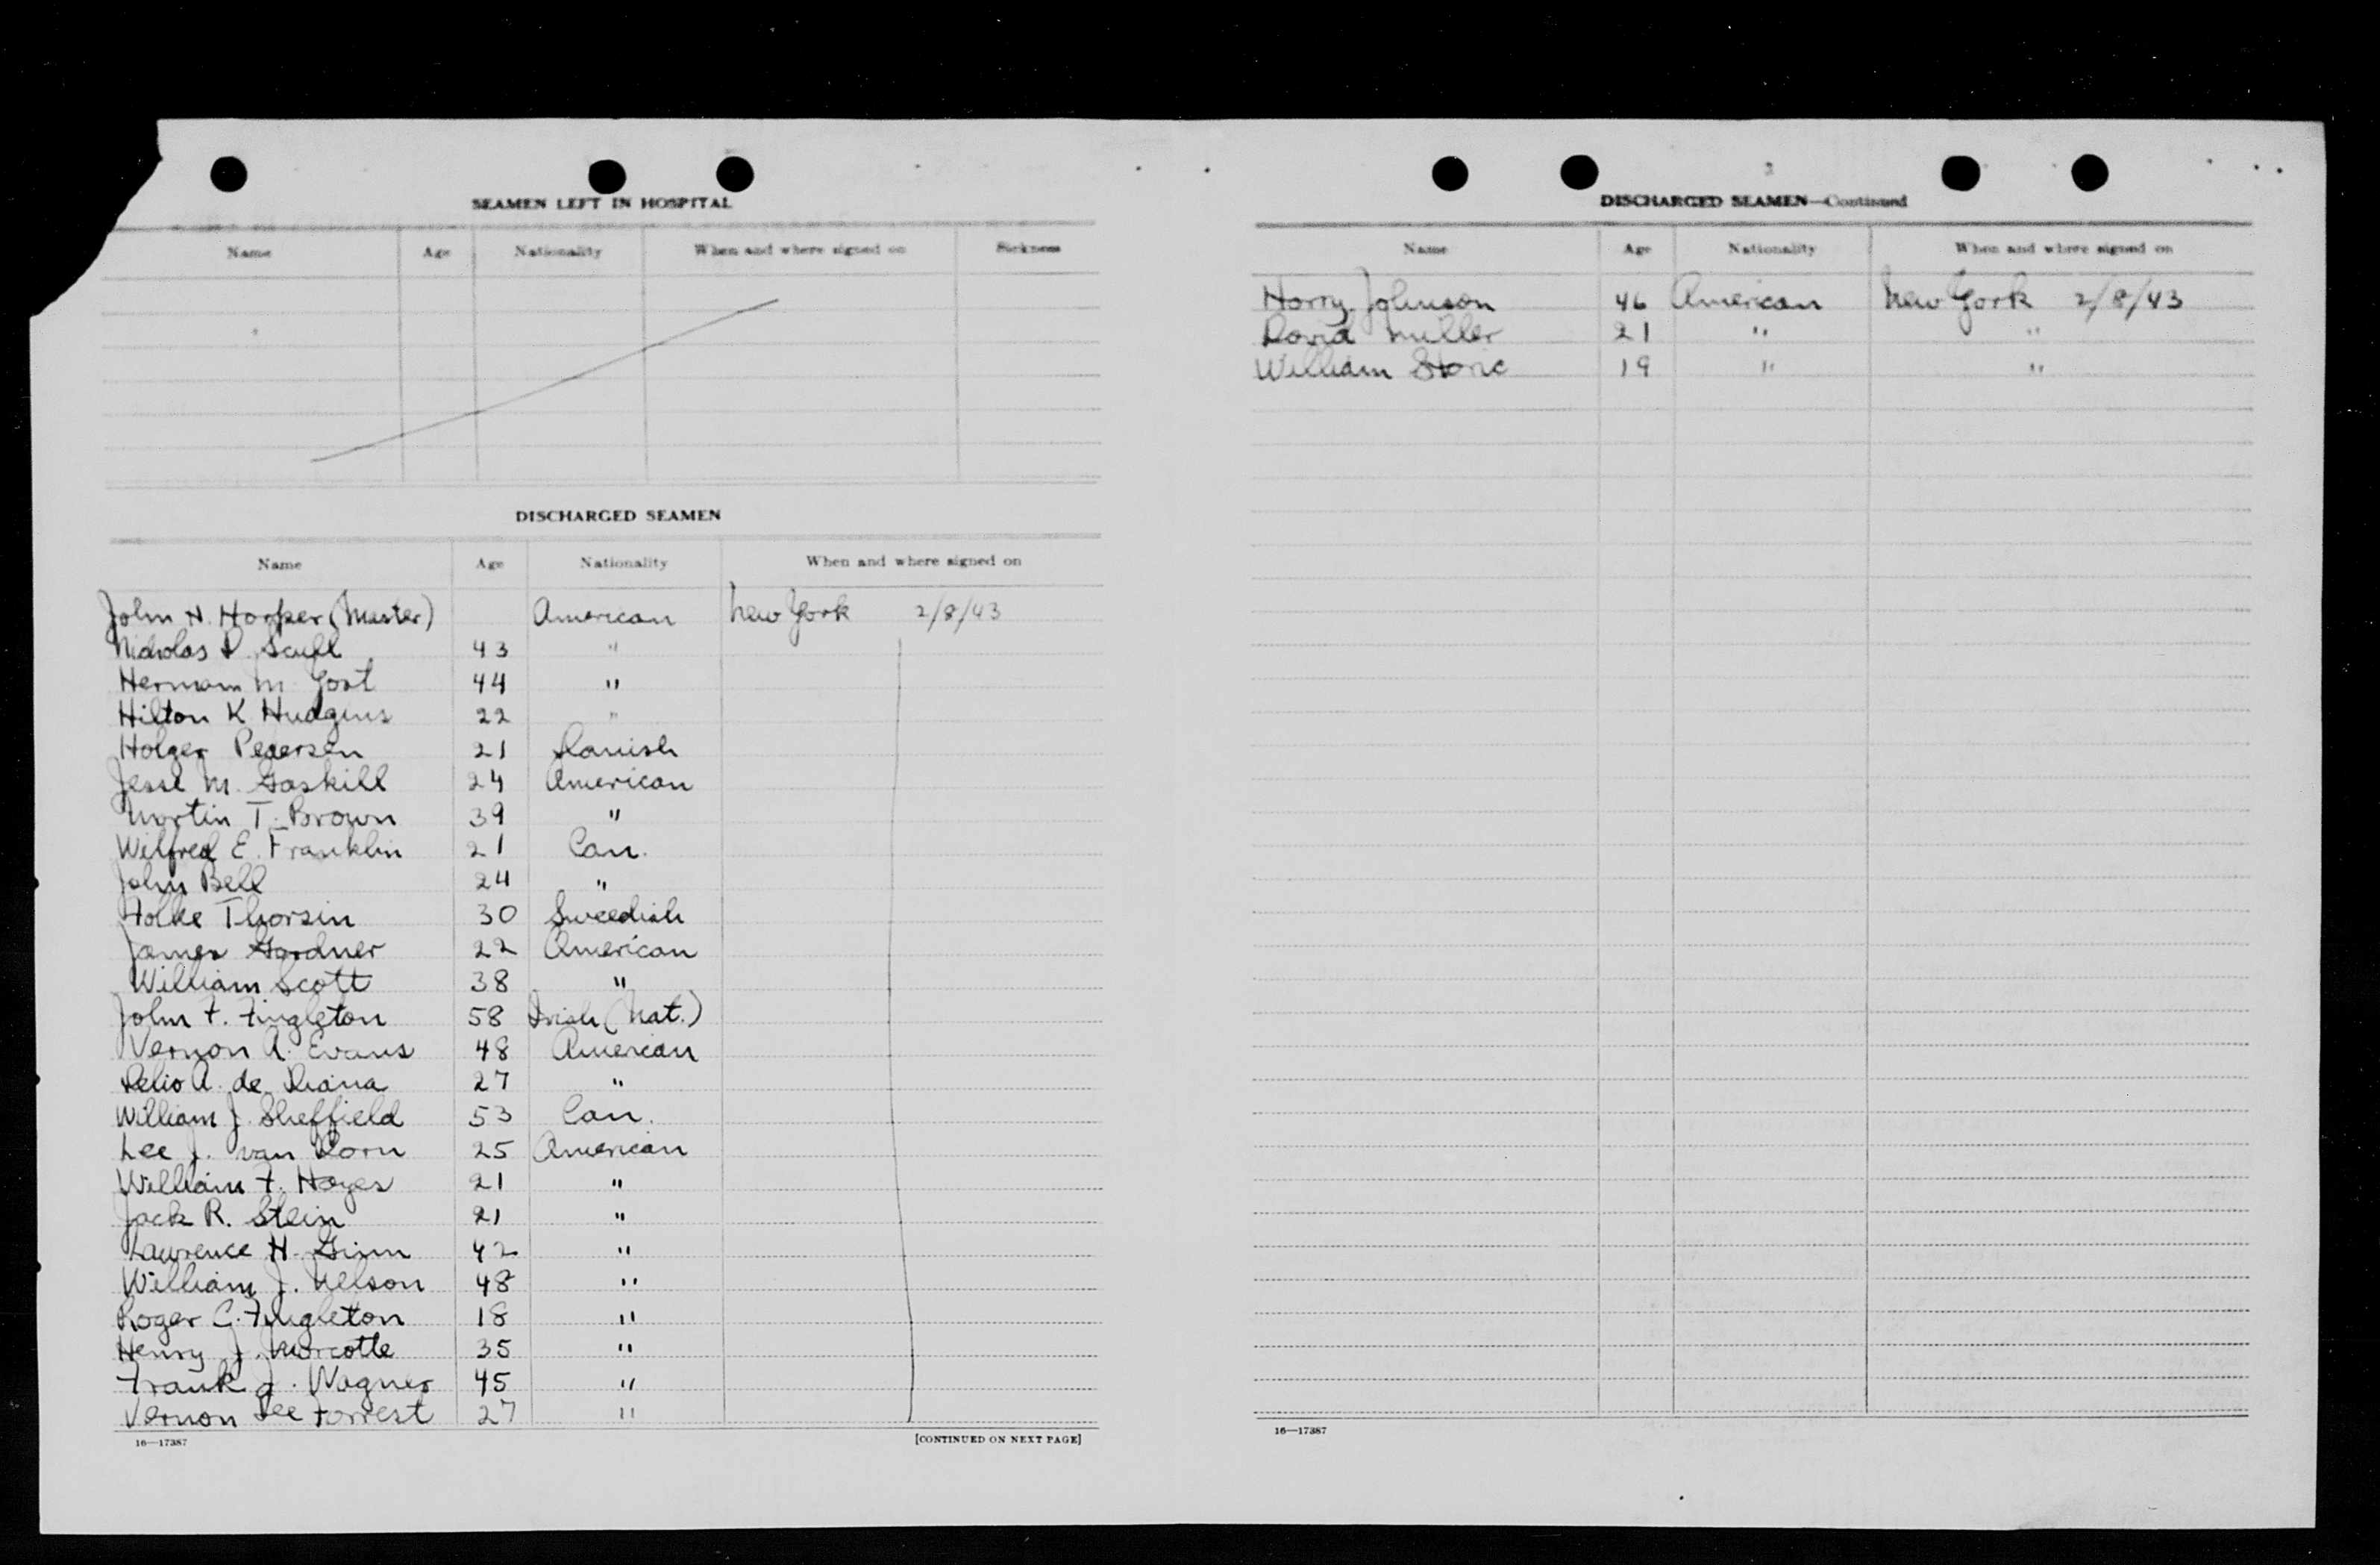 SEAMEN LEFT IN HOSPITAL
Name Age Nationality When and where signed on Sickness
DISCHARGED SEAMEN
Name Age Nationality When and where signed on
John H. Harper (Master) American New York 2/8/43
Nicholas D. Scull 43 "
Herman M. Jost 44 "
Hilton K Hudgins 22 "
Holger Pedersen 21 Danish
Jesse M. Gaskill 24 American
Martin T. Brown 39 "
Wilfred E. Franklin 21 Can.
John Bell 24 "
Folke Thorsin 30 Sweedish
James Gardner 22 American
William Scott 38 "
John F. Fingleton 58 Irish (Nat.)
Vernon A. Evans 48 American
Delio A. de 27 "
William J. Sheffield 53 Can.
Lee J. van Dorn 25 American
William F. Hayes 21 "
Jack R. Stein 21 "
Lawrence H. Ginn 42 "
William J. Nelson 48 "
Roger C. Fingleton 18 "
Henry J. Marcotte 35 "
Frank J. Wagner 45 "
Vernon Lee Forrest 27 "
16—17387 [CONTINUED ON NEXT PAGE]
2
DISCHARGED SEAMEN—Continued
Name Age Nationality When and where signed on
Harry Johnson 46 American New York 2/8/43
David Miller 21 " "
William 19 " "
16—17387